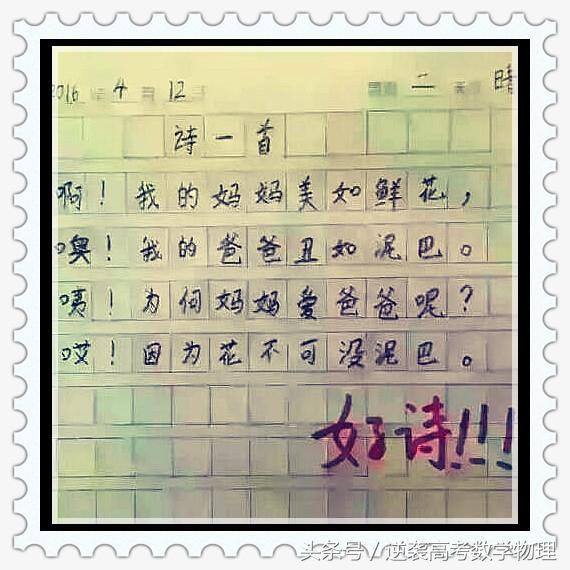 2016 4 12 二 晴
诗一首
啊！我的妈妈美如鲜花，
噢！我的爸爸丑如泥巴。
咦！为何妈妈爱爸爸呢？
哎！因为花不可没泥巴。
好诗!!!
头条号／逆袭高考数学物理